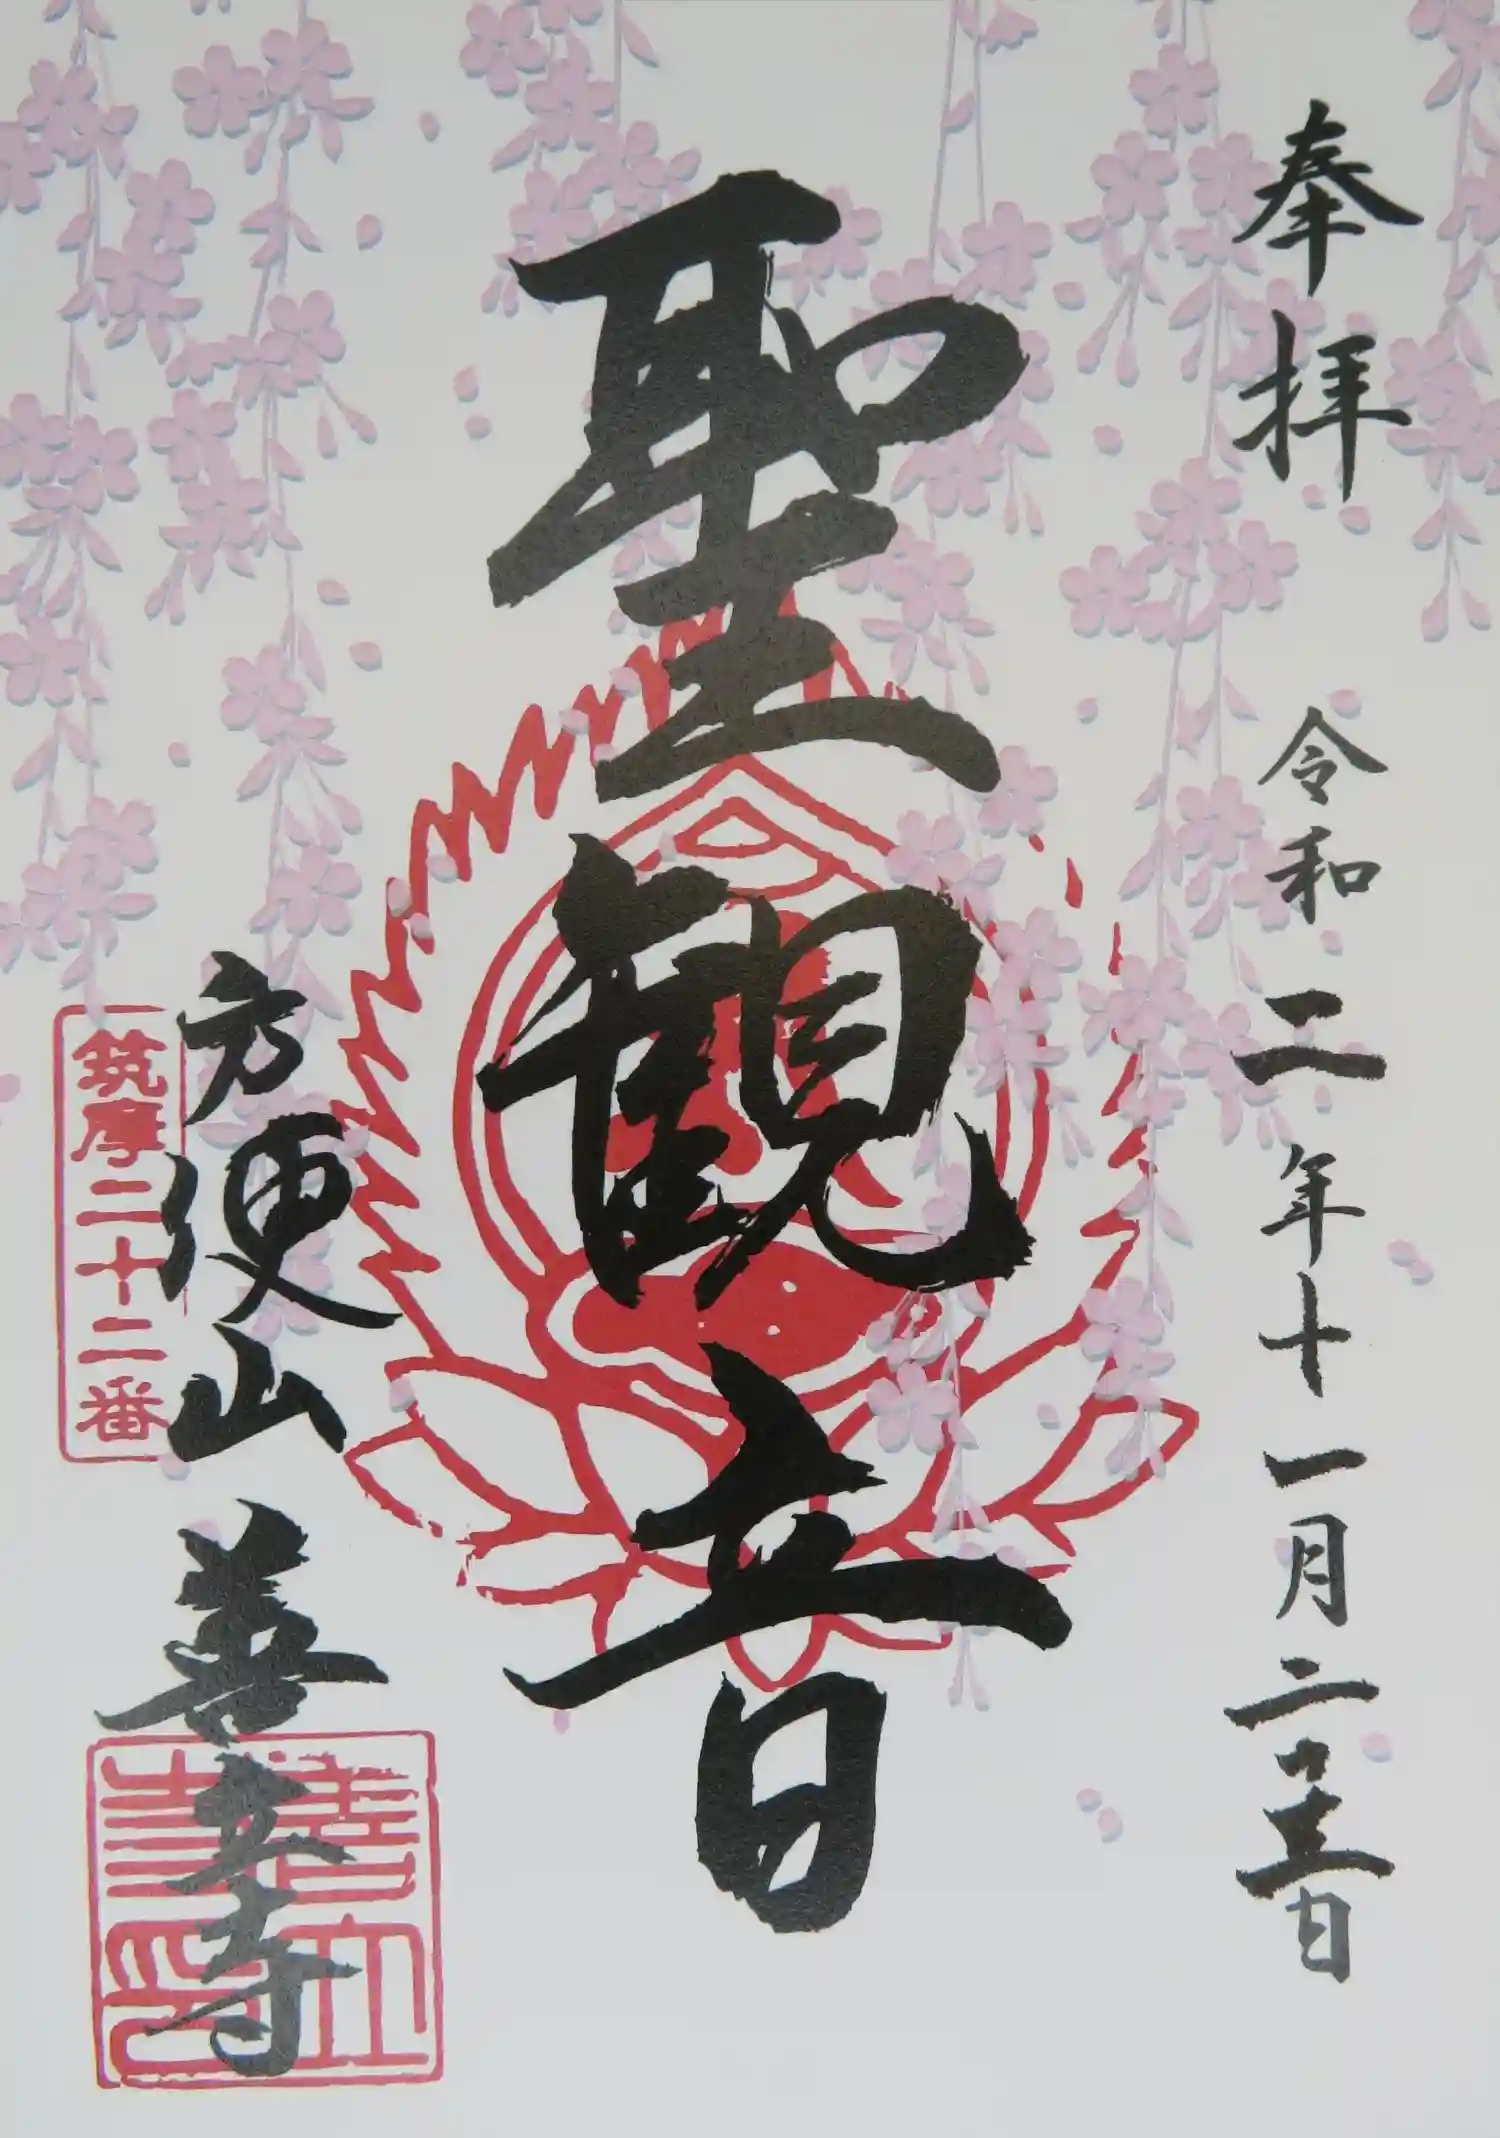 奉拝 令和二年十一月二日
聖観音
方便山 善立寺
筑摩二十二番
善立寺印